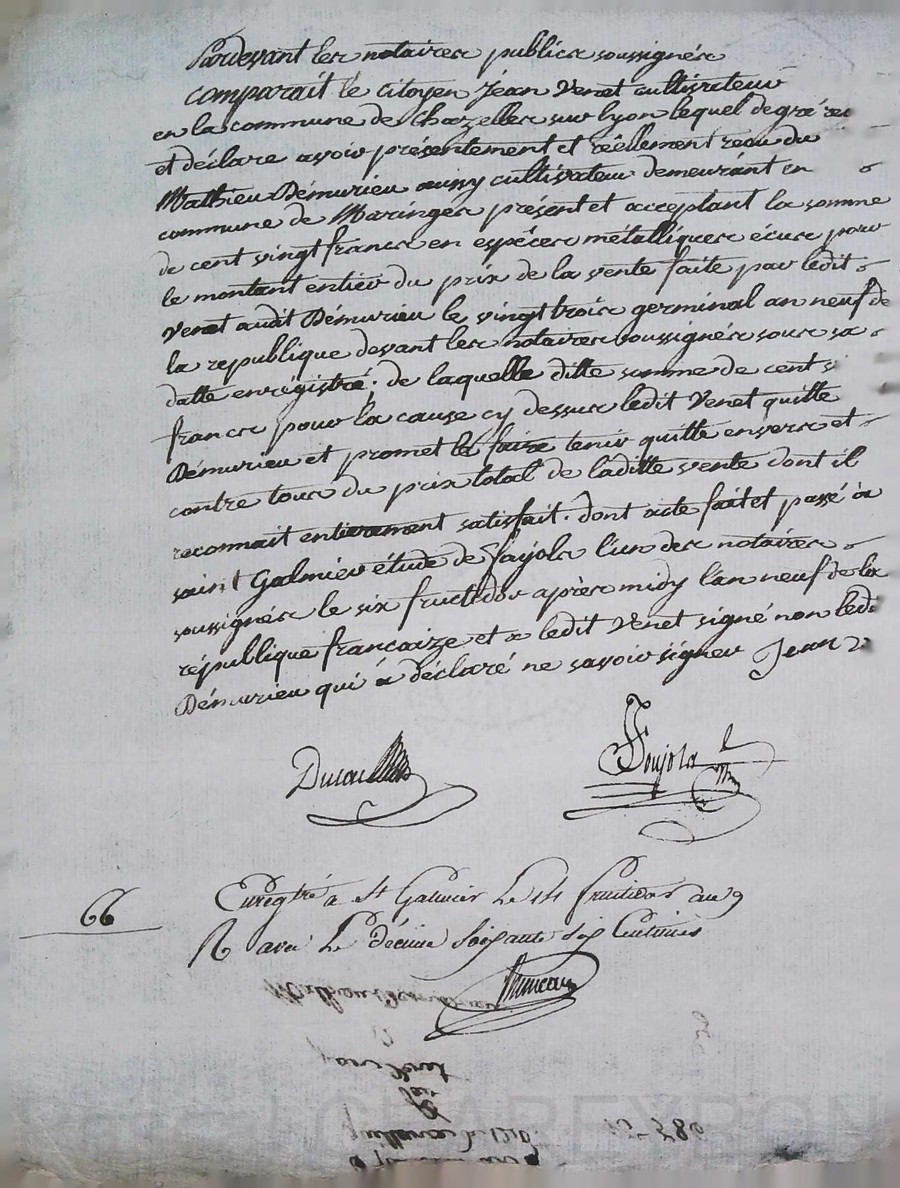 Pardevant les notaires publics soussignés
comparait le citoyen jean Venet cultivateur
en la commune de Chazelles sur lyon lequel de gré
et déclare avoir présentement et réellement recu du
Mathieu Démurieu aussy cultivateur demeurant en
commune de Maringes présent et acceptant la somme
de cent vingt francs en espèces métalliques écus pour
le montant entier du prix de la vente faite par ledit
Venet audit Démurieu le vingt trois germinal an neuf de
la republique devant les notaires soussignés sous sa
datte enrégistré. de laquelle ditte somme de cent
francs pour la cause cy dessus ledit Venet quitte
Démurieu et promet le faire tenir quitte envers et
contre tous du prix total de laditte vente dont il
reconnait entierement satisfait. dont acte fait et passé à
saint Galmier étude de fayola l'un des notaires
soussignés le six fructidor après midy l'an neuf de la
république francaize et a ledit Venet signé non ledi
Démurieu qui à déclaré ne savoir signer Jean V
Foujols
66
Enregtré a St Galmier Le fructidor an 9
R avec Le décime Soixante Six Centimes
Mathieu Demurieu
Venet
quittance de 120